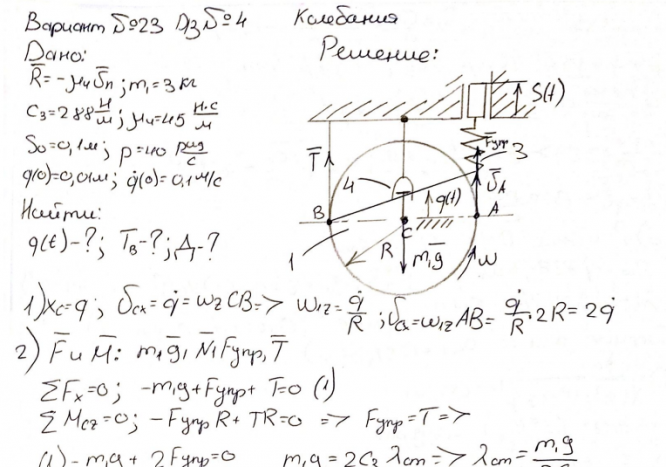 Вариант №23 ДЗ №4 Колебания
Дано:
Решение:
R̄ = -μ₄ῡп; m₁=3кг
C₃=288 Н/м; μ₄=45 Н·с/м
S₀=0,1м; p=40 рад/с
q(0)=0,01м; q̇(0)=0,1м/с
Найти:
q(t)-?; T̄в-?; Д-?
S(t)
T̄
F̄упр
3
4
ῡA
q(t)
B
C
A
1
R
m₁ḡ
ω
1) xc=q; υcx=q̇=ωz CB=> ω1z=q̇/R; υax=ω1z AB= q̇/R·2R=2q̇
2) F̄ и M̄: m₁ḡ, N̄, F̄упр, T̄
ΣFx=0; -m₁g+Fупр+T=0 (1)
ΣMcz=0; -Fупр R+TR=0 => Fупр=T=>
(1)-m₁g+2Fупр=0 m₁g=2C₃λст=> λст= m₁g